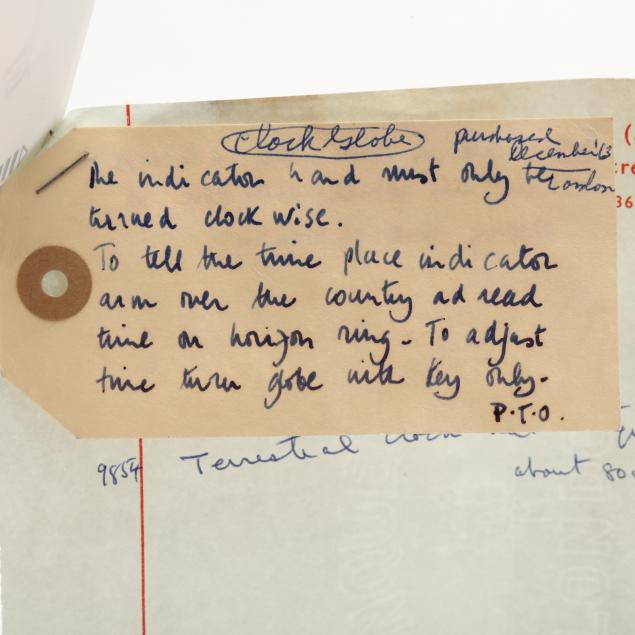 Clock Globe purchased
December 13
London
The indicator hand must only be
turned clockwise.
To tell the time place indicator
arm over the country ad read
time on horizon ring. To adjust
time turn globe with key only.
P.T.O.
9854 Terrestrial clock
about 80
36